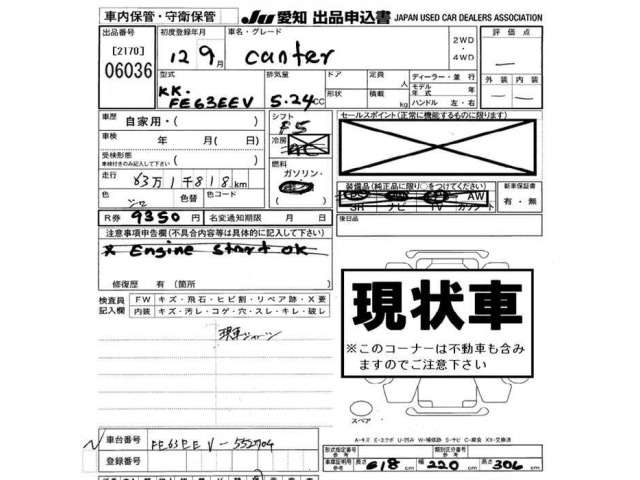 車内保管・守衛保管 JU 愛知 出品申込書 JAPAN USED CAR DEALERS ASSOCIATION
出品番号 初度登録年月 車名・グレード 2WD ・ 4WD 評価点
[2170] 06036 12年 9月 canter —
型式 排気量 ドア 定員 人 ディーラー・並行 外装 内装
KK- FE63EEV 5.24CC 形状 積載 kg モデル年式 年 ハンドル 左・右 — —
車歴 自家用・( ) シフト F5 セールスポイント(正常に機能するものに限ります)
車検 年 月(日) 冷房 AC
受検形態 車検付きのみ記入して下さい ( ) 燃料
走行 63万1千818km ガソリン・ ( ) 装備品(純正品に限り○をつけてください) 新車保証書
色 シロ 色替 色コード AW 有・無
SR ナビ TV カセット
R券 9350円 名変通知期限 月 日 後日品
注意事項申告欄(不具合内容等は具体的に記入して下さい)
* Engine start ok
修復歴 有(箇所 )
検査員記入欄 FW キズ・飛石・ヒビ割・リペア跡・X要
内装 キズ・汚レ・コゲ・穴・スレ・キレ・破レ
現車
※このコーナーは不動車も含み
ますのでご注意下さい
スペア
A-キズ E-エクボ U-凹み W-補修跡 S-サビ C-腐食 XX-交換済
車台番号 FE63EEV-552704
登録番号
形式指定番号 参考 類別区分番号 参考
車庫証明用 参考 長さ 618 cm 幅 220 cm 高さ 306 cm